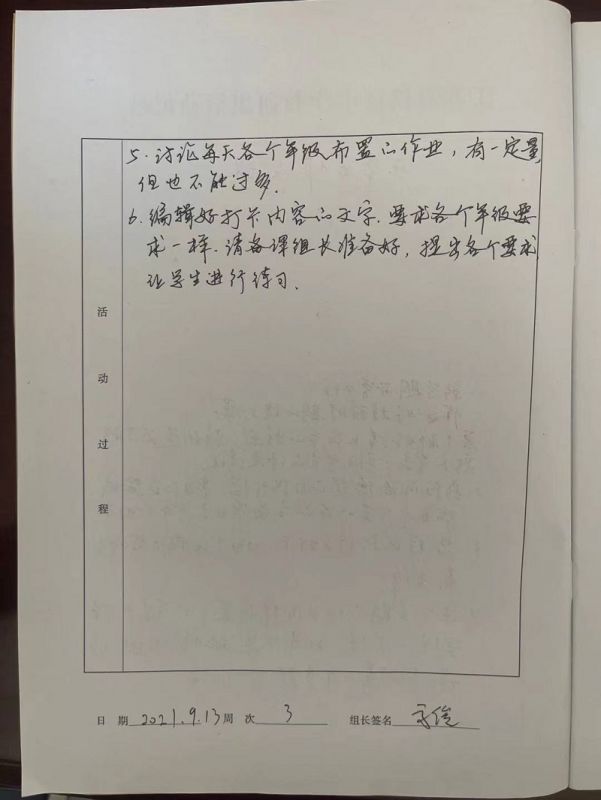 5. 讨论每天各个年级布置的作业，有一定量
但也不能过多.
6. 编辑好打卡内容的文字. 要求各个年级要
求一样. 请备课组长准备好，提出各个要求
让学生进行练习.
活动过程
日 期 2021.9.13 周 次 3 组长签名